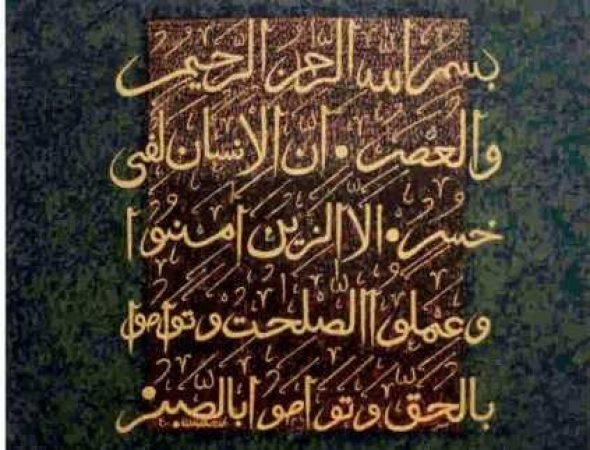 بسم الله الرحمن الرحيم
والعصر . ان الانسان لفى
خسر . الا الذين امنوا
وعملوا الصلحت وتواصوا
بالحق وتواصوا بالصبر .